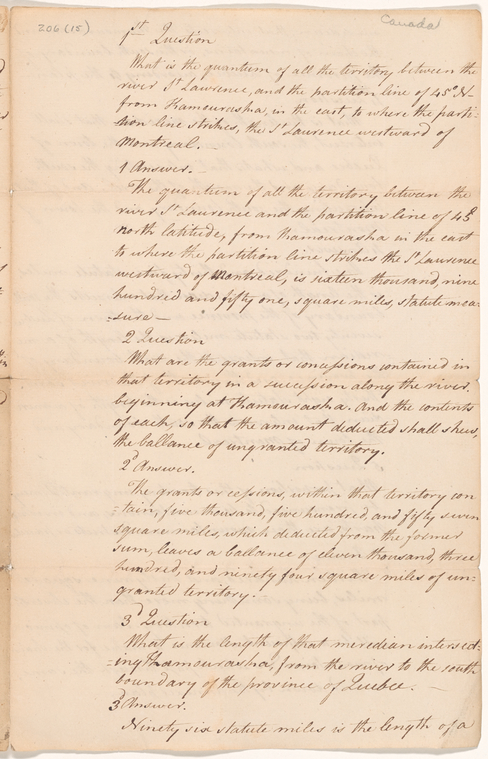 206 (15)
Canada
1st Question
What is the quantum of all the territory between the
river St Lawrence, and the partition line of 45° N-
from Kamouraska, in the east, to where the parti-
-tion line strikes, the St Laurence westward of
Montreal.—
1 Answer.—
The quantum of all the territory between the
river St Laurence and the partition line of 45°
north latitude, from Kamouraska in the east
to where the partition line strikes the St Laurence
westward of Montreal, is sixteen thousand, nine
hundred and fifty one, square miles, statute mea-
-sure —
2 Question
What are the grants or concessions contained in
that territory in a succession along the river,
beginning at Kamouraska. And the contents
of each, so that the amount deducted shall shew,
the ballance of ungranted territory.
2d Answer.
The grants or cessions, within that territory con
-tain, five thousand, five hundred, and fifty seven
square miles, which deducted from the former
sum, leaves a ballance of eleven thousand, three
hundred, and ninety four square miles of un-
granted territory.—
3d Question
What is the length of that meredian intersect-
-ing Kamouraska, from the river to the south
boundary of the province of Quebec.—
3d Answer.
Ninety six statute miles is the length of a